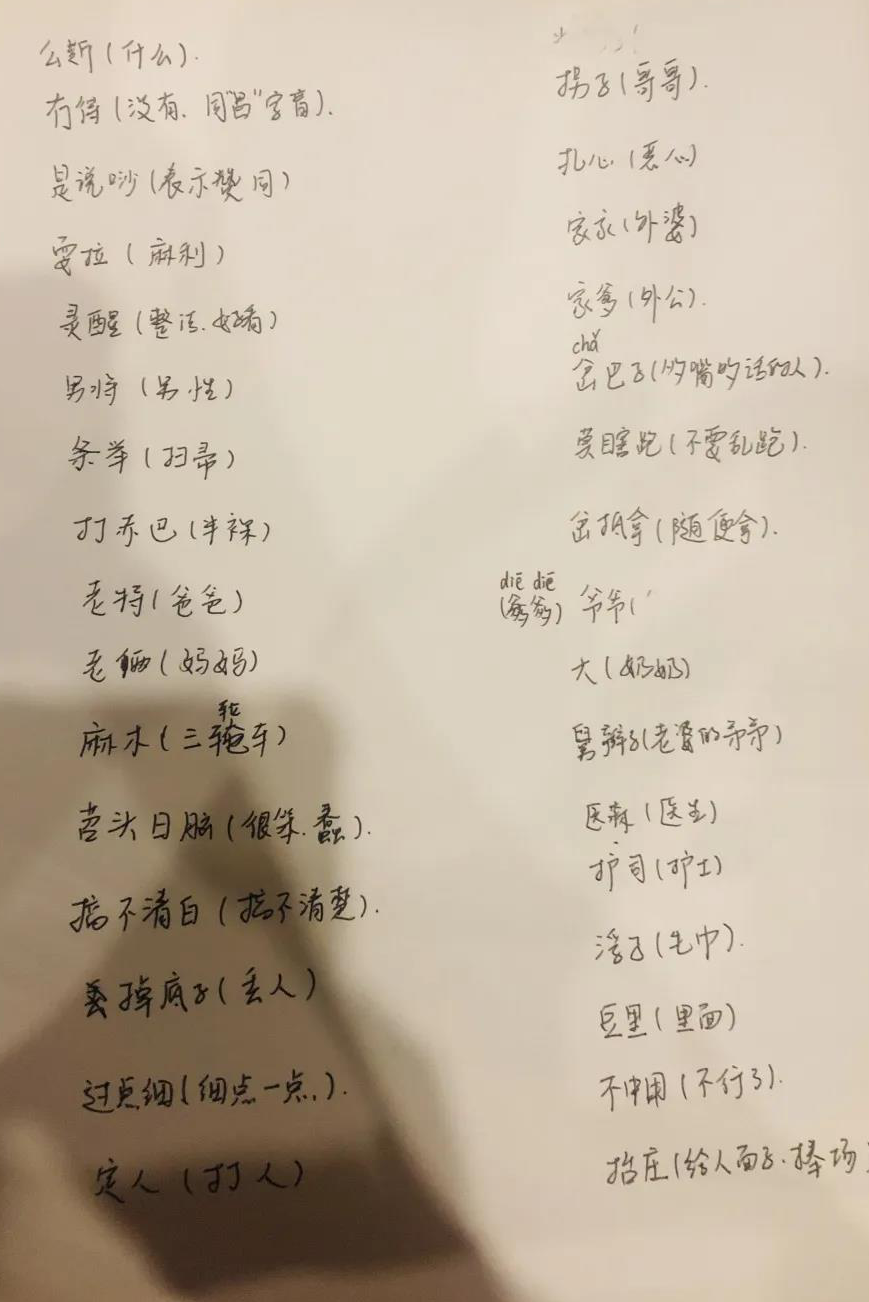 么斯(什么).
冇得(没有. 同"冒"字音).
是说唦(表示赞同)
耍拉(麻利)
灵醒(整洁.好看)
男将(男性)
条举(扫帚)
打赤巴(半裸)
老特(爸爸)
老俩(妈妈)
麻木(三轮车)
苕头日脑(很笨.蠢).
搞不清白(搞不清楚).
丢掉底子(丢人)
过点细(细点一点.).
定人(打人)
拐子(哥哥).
扎心(恶心)
家家(外婆)
家爹(外公).
chǎ
岔巴子(多嘴多话的人).
莫瞎跑(不要乱跑).
岔抵拿(随便拿).
diē diē
(爹爹) 爷爷(
大(奶奶)
舅辫子(老婆的弟弟)
医森(医生)
护司(护士)
浮子(毛巾).
豆里(里面)
不中用(不行了).
抬庄(给人面子.捧场)